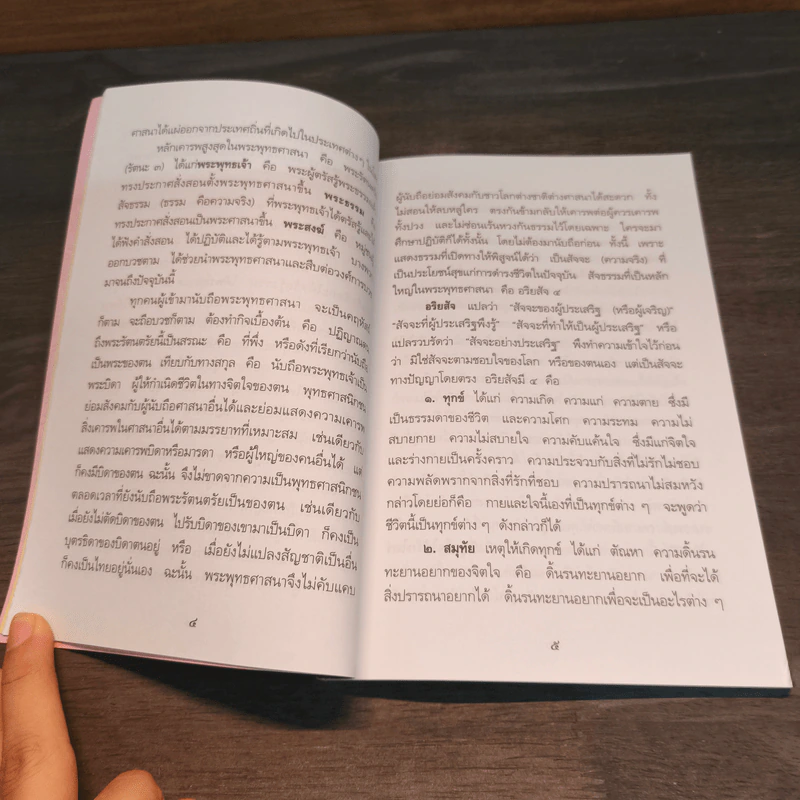 ศาสนาได้แผ่ออกจากประเทศถิ่นที่เกิดไปในประเทศต่างๆ
หลักเคารพสูงสุดในพระพุทธศาสนา คือ พระรัตน
(รัตนะ ๓) ได้แก่พระพุทธเจ้า คือ พระผู้ตรัสรู้พระธรรม
ทรงประกาศสั่งสอนตั้งพระพุทธศาสนาขึ้น พระธรรม
สัจธรรม (ธรรม คือความจริง) ที่พระพุทธเจ้าได้ตรัสรู้
ทรงประกาศสั่งสอนเป็นพระศาสนาขึ้น พระสงฆ์ คือ หมู่ชน
ได้ฟังคำสั่งสอน ได้ปฏิบัติและได้รู้ตามพระพุทธเจ้า บางพวก
ออกบวชตาม ได้ช่วยนำพระพุทธศาสนาและสืบต่อวงศ์การบวช
มาจนถึงปัจจุบันนี้
ทุกคนผู้เข้ามานับถือพระพุทธศาสนา จะเป็นคฤหัสถ์
ก็ตาม จะถือบวชก็ตาม ต้องทำกิจเบื้องต้น คือ ปฏิญาณตน
ถึงพระรัตนตรัยนี้เป็นสรณะ คือ ที่พึ่ง หรือดังที่เรียกว่านับถือ
เป็นพระของตน เทียบกับทางสกุล คือ นับถือพระพุทธเจ้าเป็น
พระบิดา ผู้ให้กำเนิดชีวิตในทางจิตใจของตน พุทธศาสนิกชน
ย่อมสังคมกับผู้นับถือศาสนาอื่นได้และย่อมแสดงความเคารพ
สิ่งเคารพในศาสนาอื่นได้ตามมรรยาทที่เหมาะสม เช่นเดียวกับ
แสดงความเคารพบิดาหรือมารดา หรือผู้ใหญ่ของคนอื่นได้ แต่
ก็คงมีบิดาของตน ฉะนั้น จึงไม่ขาดจากความเป็นพุทธศาสนิกชน
ตลอดเวลาที่ยังนับถือพระรัตนตรัยเป็นของตน เช่นเดียวกับ
เมื่อยังไม่ตัดบิดาของตน ไปรับบิดาของเขามาเป็นบิดา ก็คงเป็น
บุตรธิดาของบิดาตนอยู่ หรือ เมื่อยังไม่แปลงสัญชาติเป็นอื่น
ก็คงเป็นไทยอยู่นั่นเอง ฉะนั้น พระพุทธศาสนาจึงไม่คับแคบ
๔
ผู้นับถือย่อมสังคมกับชาวโลกต่างชาติต่างศาสนาได้สะดวก ทั้ง
ไม่สอนให้ลบหลู่ใคร ตรงกันข้ามกลับให้เคารพต่อผู้ควรเคารพ
ทั้งปวง และไม่ซ่อนเร้นหวงกันธรรมไว้โดยเฉพาะ ใครจะมา
ศึกษาปฏิบัติก็ได้ทั้งนั้น โดยไม่ต้องมานับถือก่อน ทั้งนี้ เพราะ
แสดงธรรมที่เปิดทางให้พิสูจน์ได้ว่า เป็นสัจจะ (ความจริง) ที่
เป็นประโยชน์สุขแก่การดำรงชีวิตในปัจจุบัน สัจธรรมที่เป็นหลัก
ใหญ่ในพระพุทธศาสนา คือ อริยสัจ ๔
อริยสัจ แปลว่า “สัจจะของผู้ประเสริฐ (หรือผู้เจริญ)”
“สัจจะที่ผู้ประเสริฐพึงรู้” “สัจจะที่ทำให้เป็นผู้ประเสริฐ” หรือ
แปลรวบรัดว่า “สัจจะอย่างประเสริฐ” พึงทำความเข้าใจไว้ก่อน
ว่า มิใช่สัจจะตามชอบใจของโลก หรือของตนเอง แต่เป็นสัจจะ
ทางปัญญาโดยตรง อริยสัจมี ๔ คือ
๑. ทุกข์ ได้แก่ ความเกิด ความแก่ ความตาย ซึ่งมี
เป็นธรรมดาของชีวิต และความโศก ความระทม ความไม่
สบายกาย ความไม่สบายใจ ความคับแค้นใจ ซึ่งมีแก่จิตใจ
และร่างกายเป็นครั้งคราว ความประจวบกับสิ่งที่ไม่รักไม่ชอบ
ความพลัดพรากจากสิ่งที่รักที่ชอบ ความปรารถนาไม่สมหวัง
กล่าวโดยย่อก็คือ กายและใจนี้เองที่เป็นทุกข์ต่าง ๆ จะพูดว่า
ชีวิตนี้เป็นทุกข์ต่าง ๆ ดังกล่าวก็ได้
๒. สมุทัย เหตุให้เกิดทุกข์ ได้แก่ ตัณหา ความดิ้นรน
ทะยานอยากของจิตใจ คือ ดิ้นรนทะยานอยาก เพื่อที่จะได้
สิ่งปรารถนาอยากได้ ดิ้นรนทะยานอยากเพื่อจะเป็นอะไรต่าง ๆ
๕